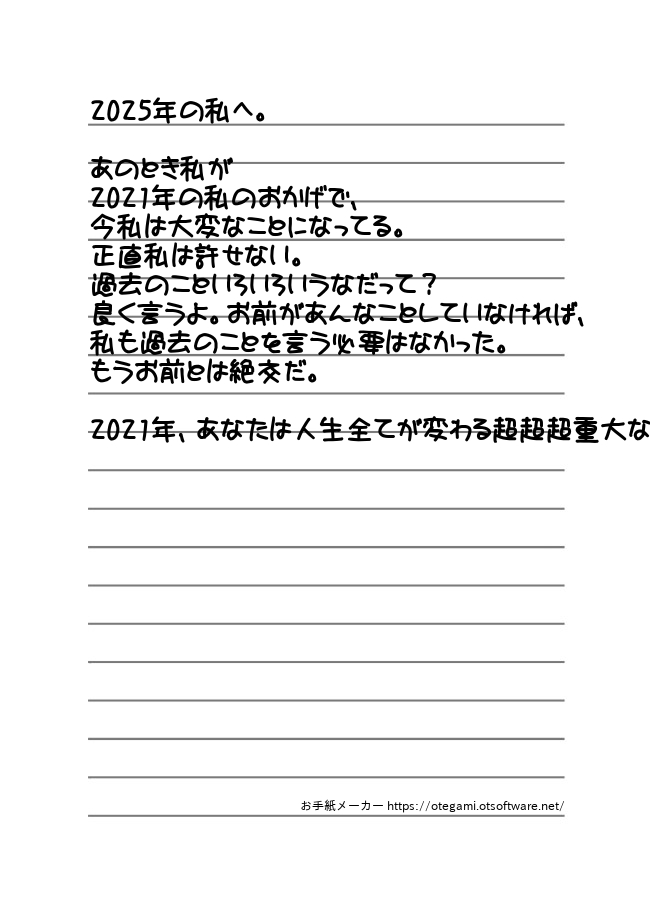 2025年の私へ。
あのとき私が
2021年の私のおかげで、
今私は大変なことになってる。
正直私は許せない。
過去のこといろいろいうなだって？
良く言うよ。お前があんなことしていなければ、
私も過去のことを言う必要はなかった。
もうお前とは絶交だ。
2021年、あなたは人生全てが変わる超超超重大な
お手紙メーカー https://otegami.otsoftware.net/